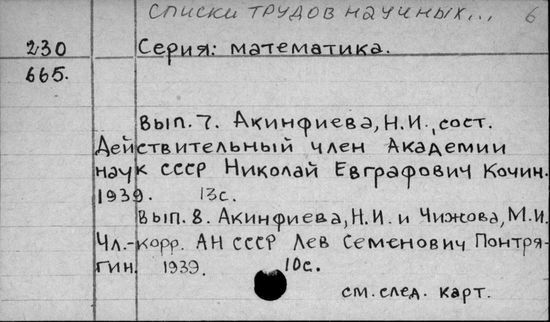 списки трудов научных... 6
230 Серия: математика.
665.
Вып. 7. Акинфиева, Н.И., сост.
Действительный член Академии
наук СССР Николай Евграфович Кочин.
1939. 13с.
Вып. 8. Акинфиева, Н.И. и Чижова, М.И.
Чл.-корр. АН СССР Лев Семенович Понтря-
гин. 1939. 10с.
см. след. карт.